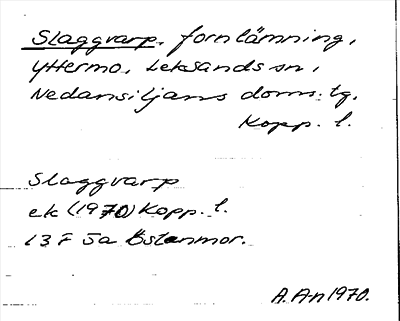 Slaggvarp, fornlämning,
Yttermo, Leksands sn,
Nedansiljans doms. tg.
Kopp. l.
Slaggvarp
ek (1970) Kopp. l.
13 F 5a Östanmor.
A. An 1970.